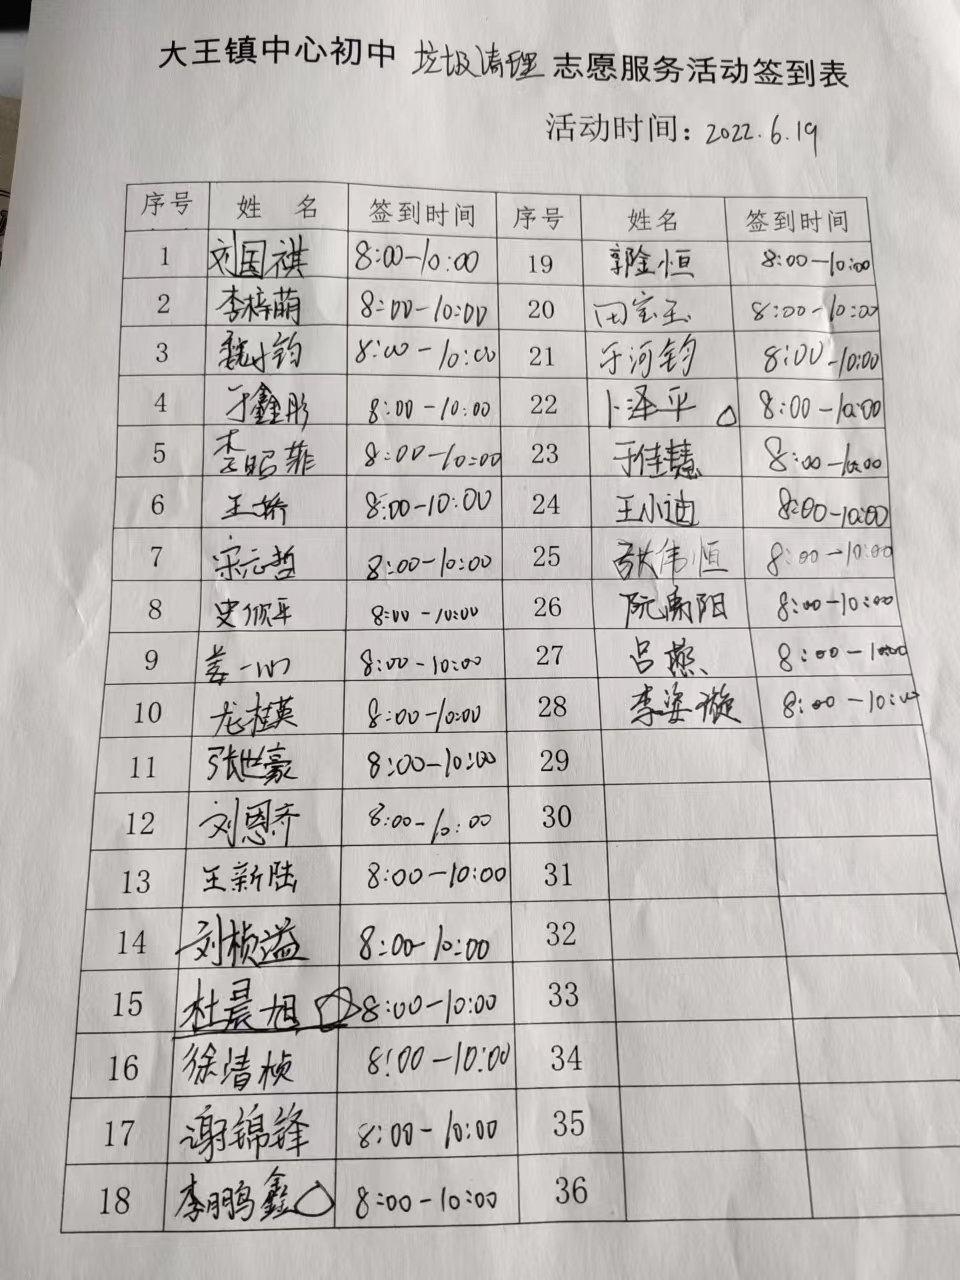 大王镇中心初中 垃圾清理 志愿服务活动签到表
活动时间：2022.6.19
序号 姓 名 签到时间 序号 姓名 签到时间
1 刘国祺 8:00-10:00 19 郭金恒 8:00-10:00
2 李梓萌 8:00-10:00 20 田宝玉 8:00-10:00
3 魏小钧 8:00-10:00 21 于河钧 8:00-10:00
4 于鑫彤 8:00-10:00 22 卜泽平 8:00-10:00
5 李昭菲 8:00-10:00 23 于佳慧 8:00-10:00
6 王娇 8:00-10:00 24 王小迪 8:00-10:00
7 宋元哲 8:00-10:00 25 张伟恒 8:00-10:00
8 史欣平 8:00-10:00 26 阮禹阳 8:00-10:00
9 姜一心 8:00-10:00 27 吕燕 8:00-10:00
10 龙桂英 8:00-10:00 28 李姿璇 8:00-10:00
11 张世豪 8:00-10:00 29
12 刘恩齐 8:00-10:00 30
13 王新陆 8:00-10:00 31
14 刘桢溢 8:00-10:00 32
15 杜晨旭 8:00-10:00 33
16 徐靖桢 8:00-10:00 34
17 谢锦锋 8:00-10:00 35
18 李鹏鑫 8:00-10:00 36